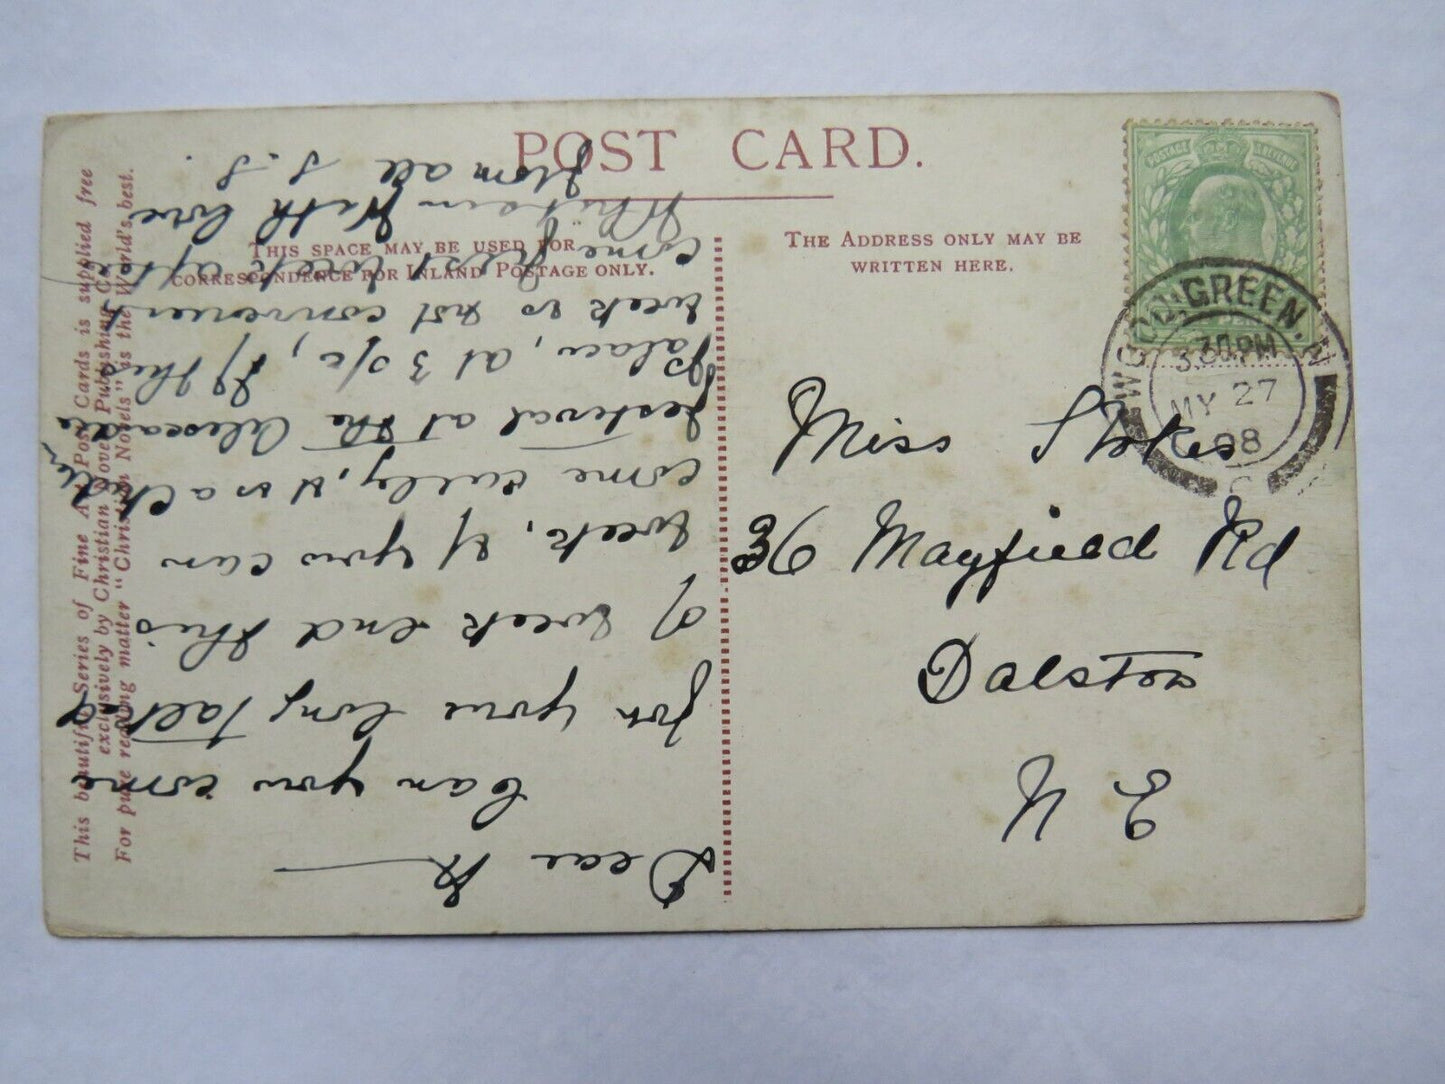 POST CARD.
THIS SPACE MAY BE USED FOR
CORRESPONDENCE FOR INLAND POSTAGE ONLY.
THE ADDRESS ONLY MAY BE
WRITTEN HERE.
This beautiful Series of Fine Art Post Cards is supplied free
exclusively by Christian Novels Publishing Co.
For pure reading matter "Christian Novels" is the World's best.
POSTAGE REVENUE
WOOD GREEN. N
3.30 PM
MY 27
08
Miss Stokes
36 Mayfield Rd
Dalston
N E
Dear
Can you come
for your long talked
of week end this
week, if you can
come early, it is a Children
festival at the Alexandra
Palace, at 3 o/c, If this
week is not convenient
come first week after
Whitsun With love
from all